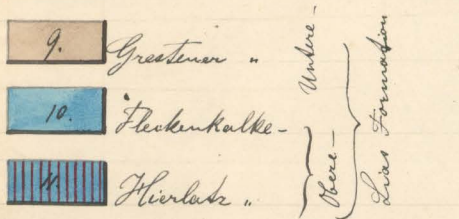 9. Grestener „
10. Fleckenkalke -
11. Hierlatz „
Untere -
Obere -
Lias Formation